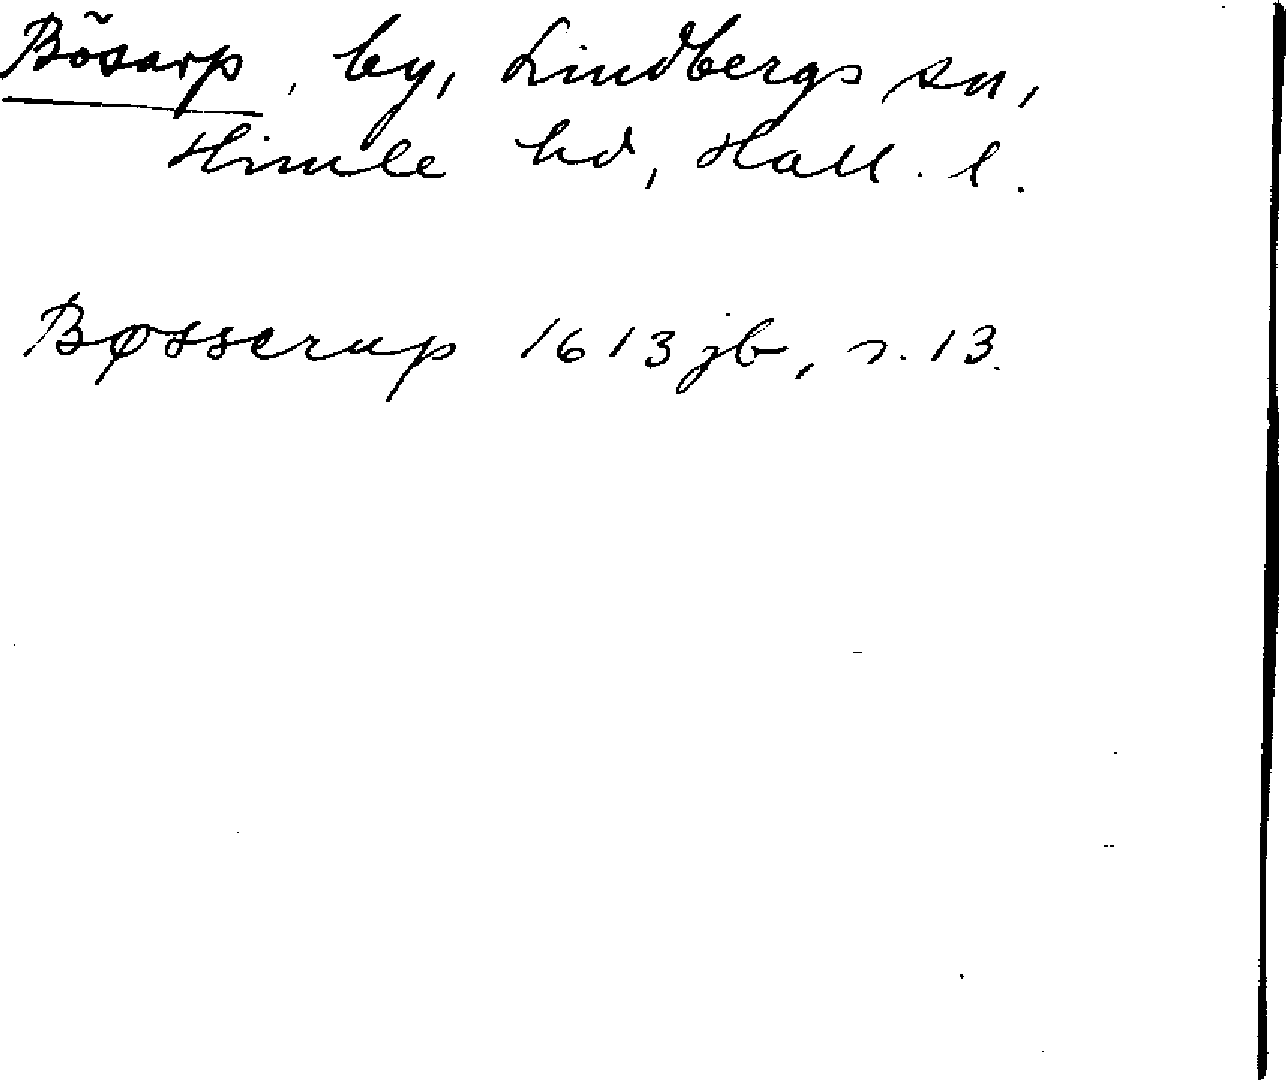 Bösarp, by, Lindbergs sn,
Himle hd, Hall. l.
Bøsserup 1613 jb, s. 13.